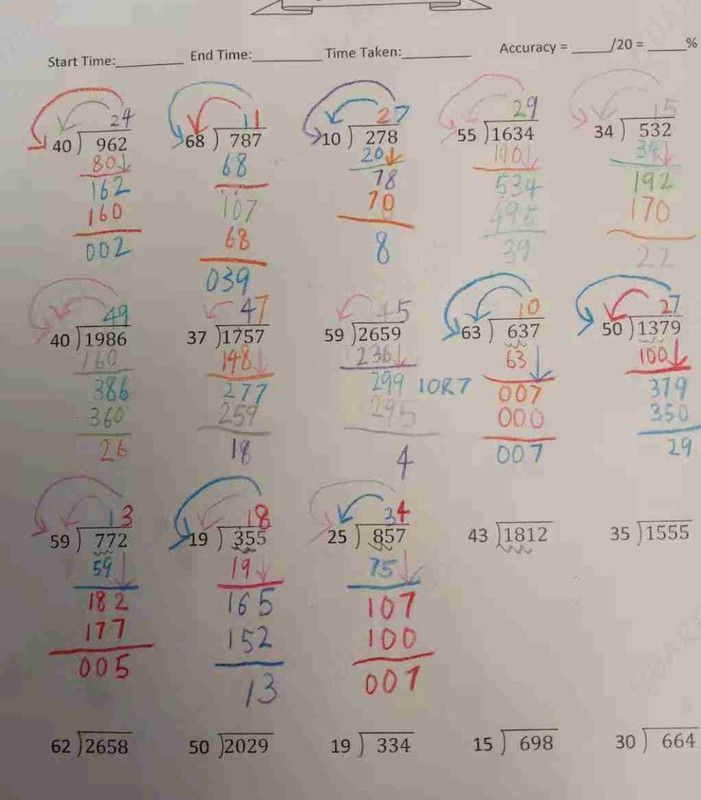 Start Time:________ End Time:________ Time Taken:________ Accuracy = _____/20 = _____%
24 11 27 29 15
40)962 68)787 10)278 55)1634 34)532
80 68 20 110 34
162 107 78 534 192
160 68 70 495 170
002 039 8 39 22
49 47 45 10 27
40)1986 37)1757 59)2659 63)637 50)1379
160 148 236 63 100
386 277 299 10R7 007 379
360 259 295 000 350
26 18 4 007 29
13 18 34
59)772 19)355 25)857 43)1812 35)1555
59 19 75
182 165 107
177 152 100
005 13 007
62)2658 50)2029 19)334 15)698 30)664